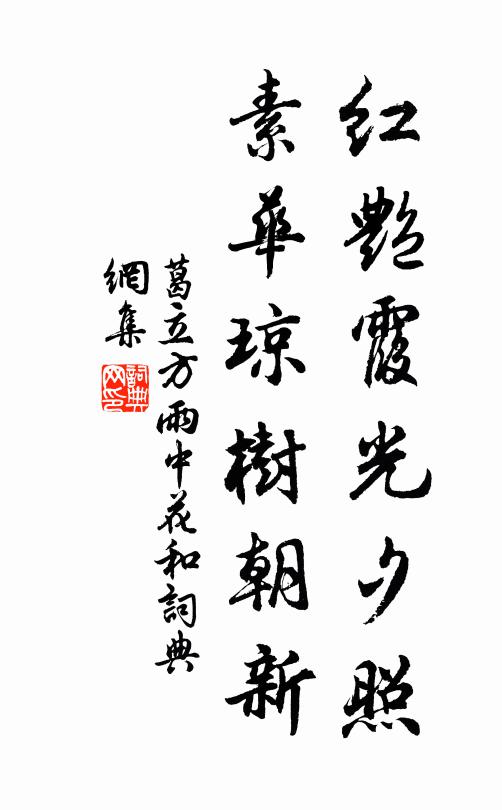 紅艷霞光夕照
素華瓊樹朝新
葛立方雨中花和詞典
網集
詞典
网印